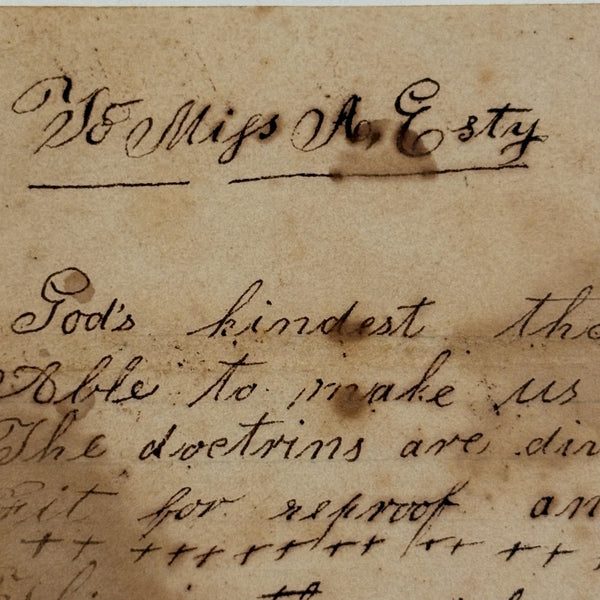 To Miss A. Esty
God's kindest tho
Able to make us
The doctrins are div
Fit for reproof an
++ +++++++ ++ ++